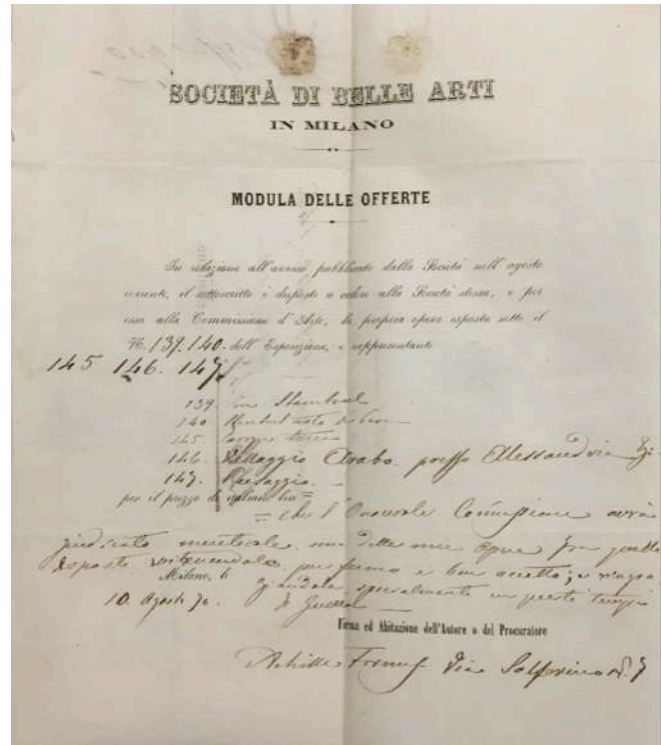 SOCIETÀ DI BELLE ARTI
IN MILANO
MODULA DELLE OFFERTE
In relazione all'avviso pubblicato dalla Società nell'agosto
corrente, il sottoscritto è disposto a cedere alla Società stessa, e per
essa alla Commissione d'Arte, la propria opera esposta sotto il
N. 139. 140. dell'Esposizione, e rappresentante
145 146. 147.
139. in Stambul
140
145.
146. Villaggio Arabo presso Alessandria
147. Paesaggio.
per il prezzo di italiane lire =
= che l'Onorevole Commissione avrà
giudicato una delle mie opere fra quelle
esposte per fermo e ben accetto; e
Milano, li specialmente in questi tempi
10. Agosto 70. di Guerra
Firma ed Abitazione dell'Autore o del Procuratore
Achille Via Solferino N. 7